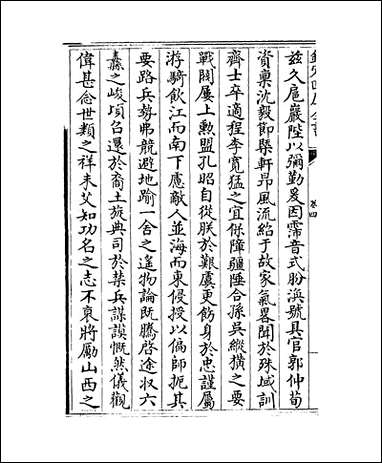 欽定四庫全書
卷四
兹久扈巖陛以彌勤爰因霈音式肦渙號具官郭仲荀
資稟沈毅節槩軒昂風流紹于故家氣畧聞於殊域訓
齊士卒適程李寛猛之宜保障疆陲合孫吳縱橫之要
戰鬬屢上勲盟孔昭自從朕於艱虞更飭身於忠謹屬
游騎飲江而南下慮敵人並海而東侵授以偏師扼其
要路兵勢弗競避地踰一舍之遙物論既騰啓途收六
纛之峻頃召還於裔土旋典司於禁兵謀謨慨然儀觀
偉甚念世類之祥未艾知功名之志不衰將勵山西之